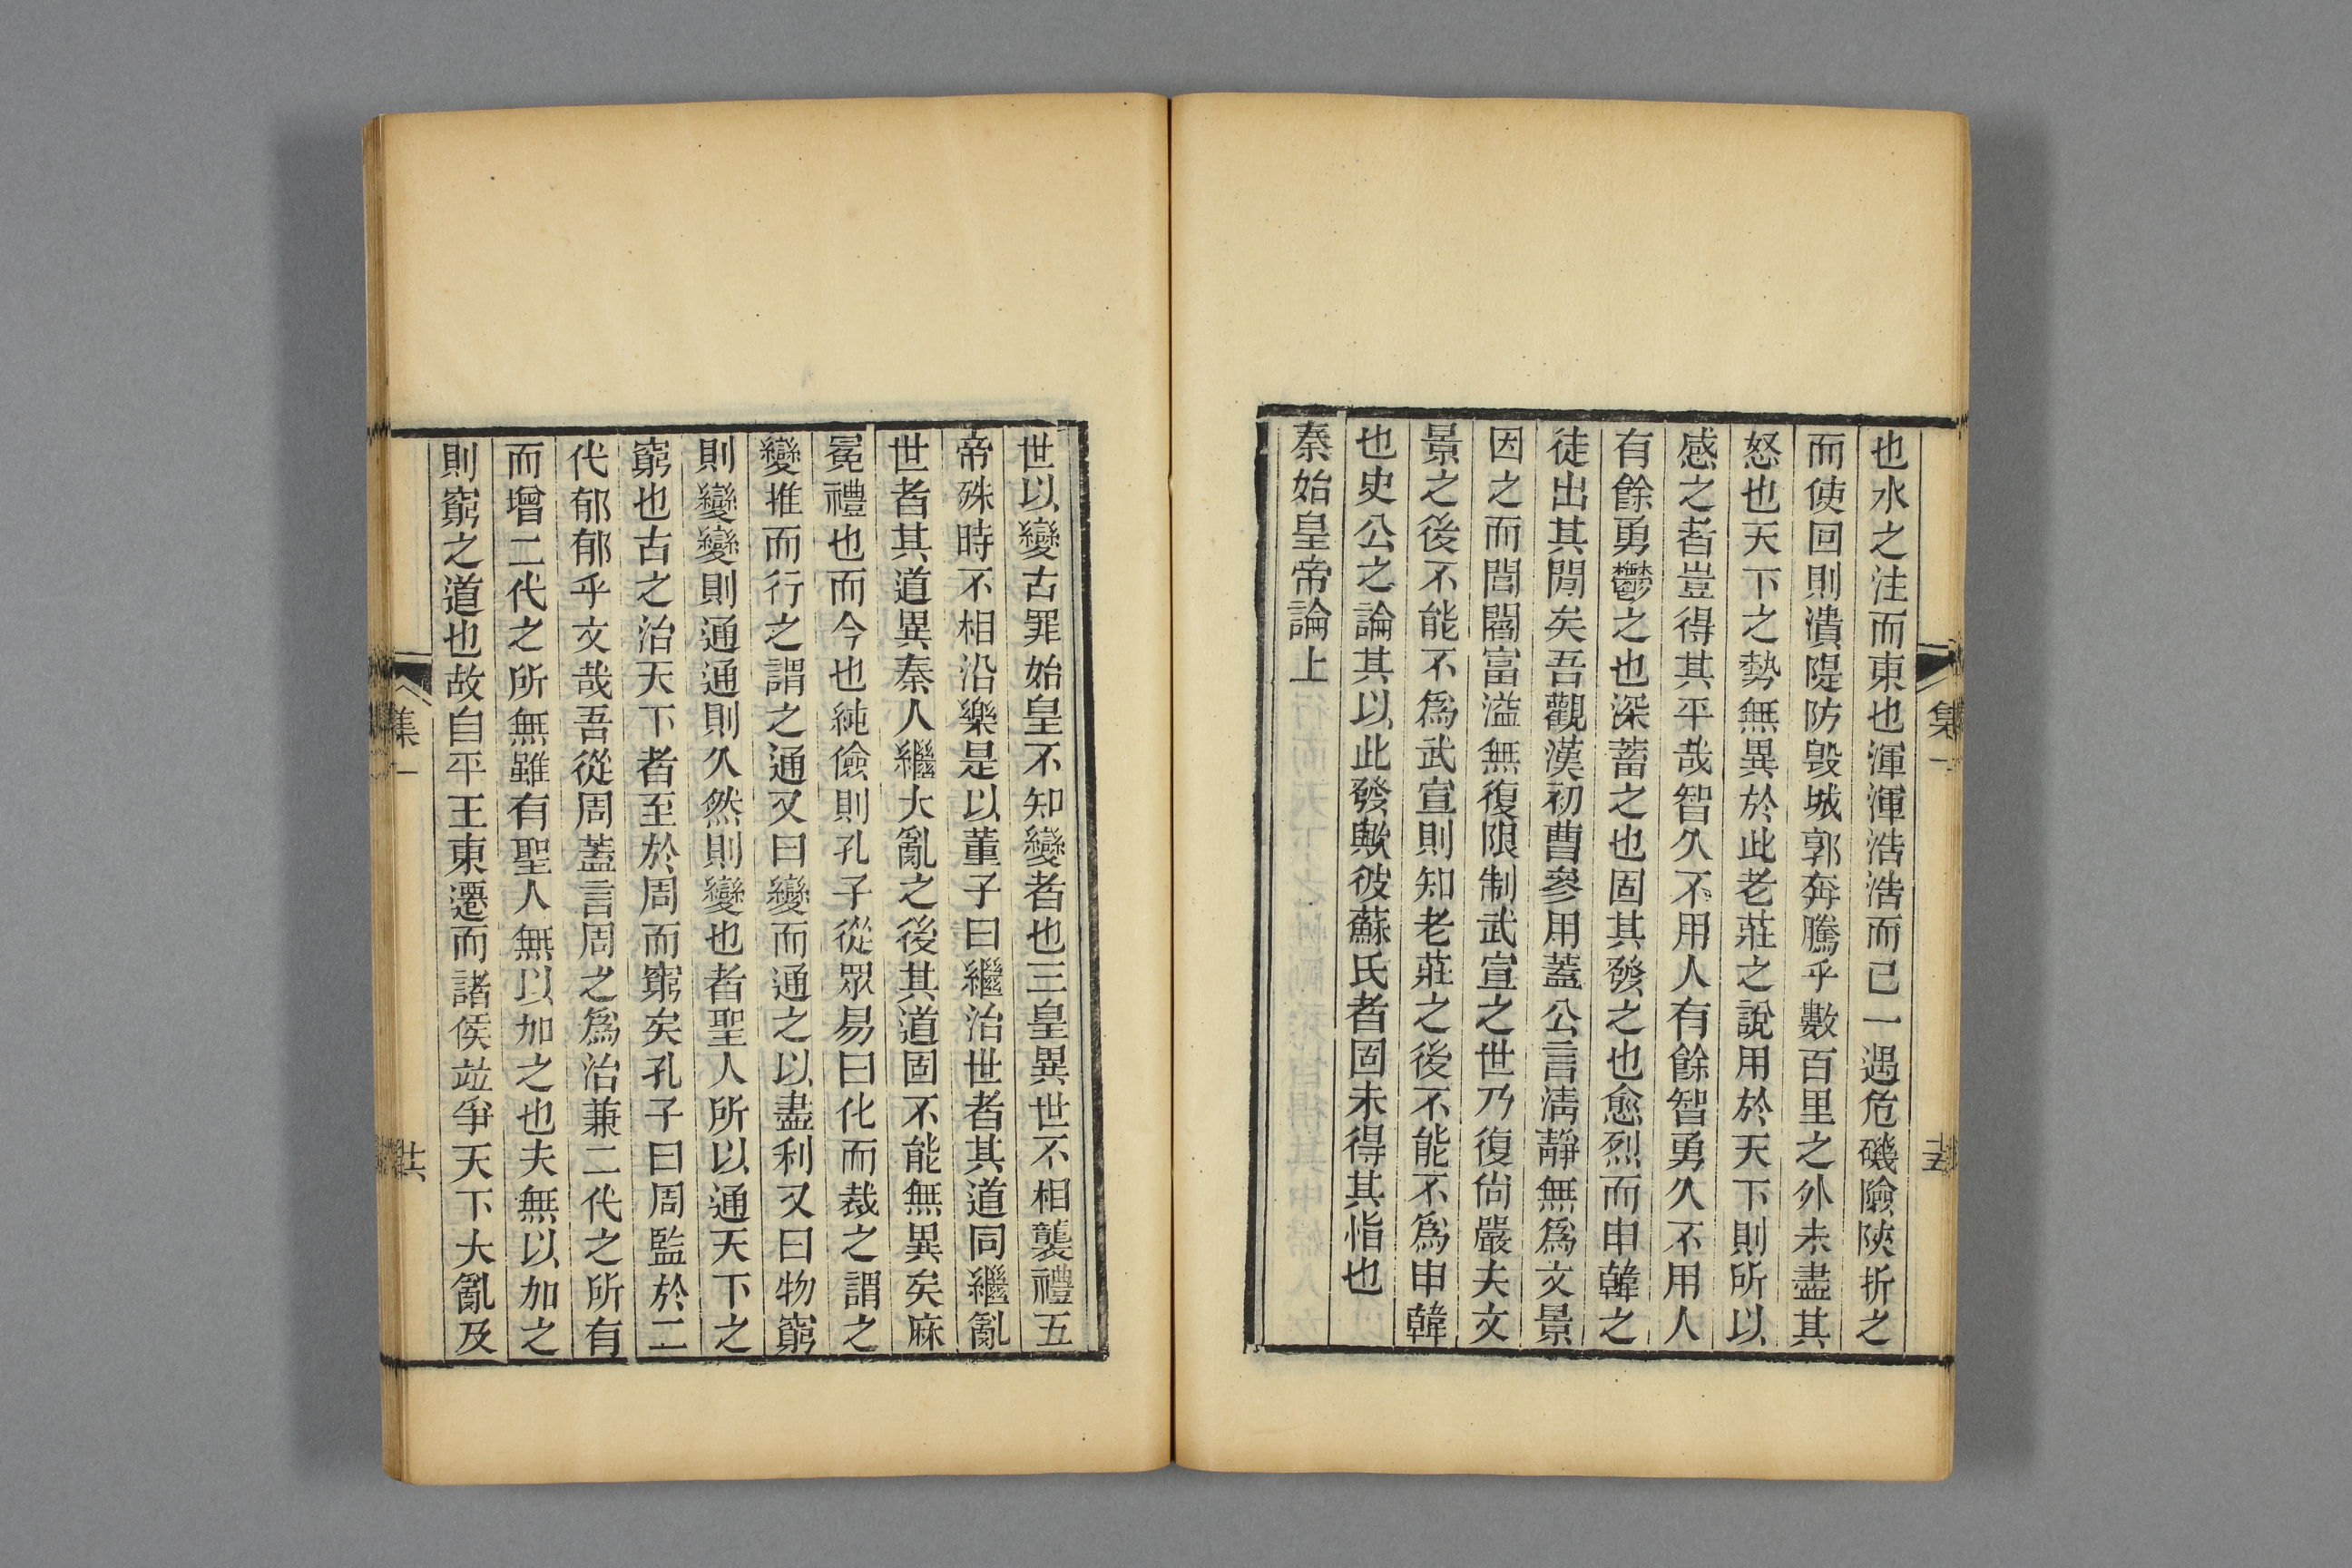 也水之注而東也渾渾浩浩而已一遇危磯險陝折之
而使回則潰隄防毀城郭奔騰乎數百里之外未盡其
怒也天下之勢無異於此老莊之說用於天下則所以
感之者豈得其平哉智久不用人有餘智勇久不用人
有餘勇鬱之也深蓄之也固其發之也愈烈而申韓之
徒出其閒矣吾觀漢初曹參用蓋公言淸靜無爲文景
因之而閭閻富溢無復限制武宣之世乃復尙嚴夫文
景之後不能不爲武宣則知老莊之後不能不爲申韓
也史公之論其以此發歟彼蘇氏者固未得其恉也
秦始皇帝論上
集一
十五
世以變古罪始皇不知變者也三皇異世不相襲禮五
帝殊時不相沿樂是以董子曰繼治世者其道同繼亂
世者其道異秦人繼大亂之後其道固不能無異矣麻
冕禮也而今也純儉則孔子從眾易曰化而裁之謂之
變推而行之謂之通又曰變而通之以盡利又曰物窮
則變變則通通則久然則變也者聖人所以通天下之
窮也古之治天下者至於周而窮矣孔子曰周監於二
代郁郁乎文哉吾從周蓋言周之爲治兼二代之所有
而增二代之所無雖有聖人無以加之也夫無以加之
則窮之道也故自平王東遷而諸侯竝爭天下大亂及
集一
十六